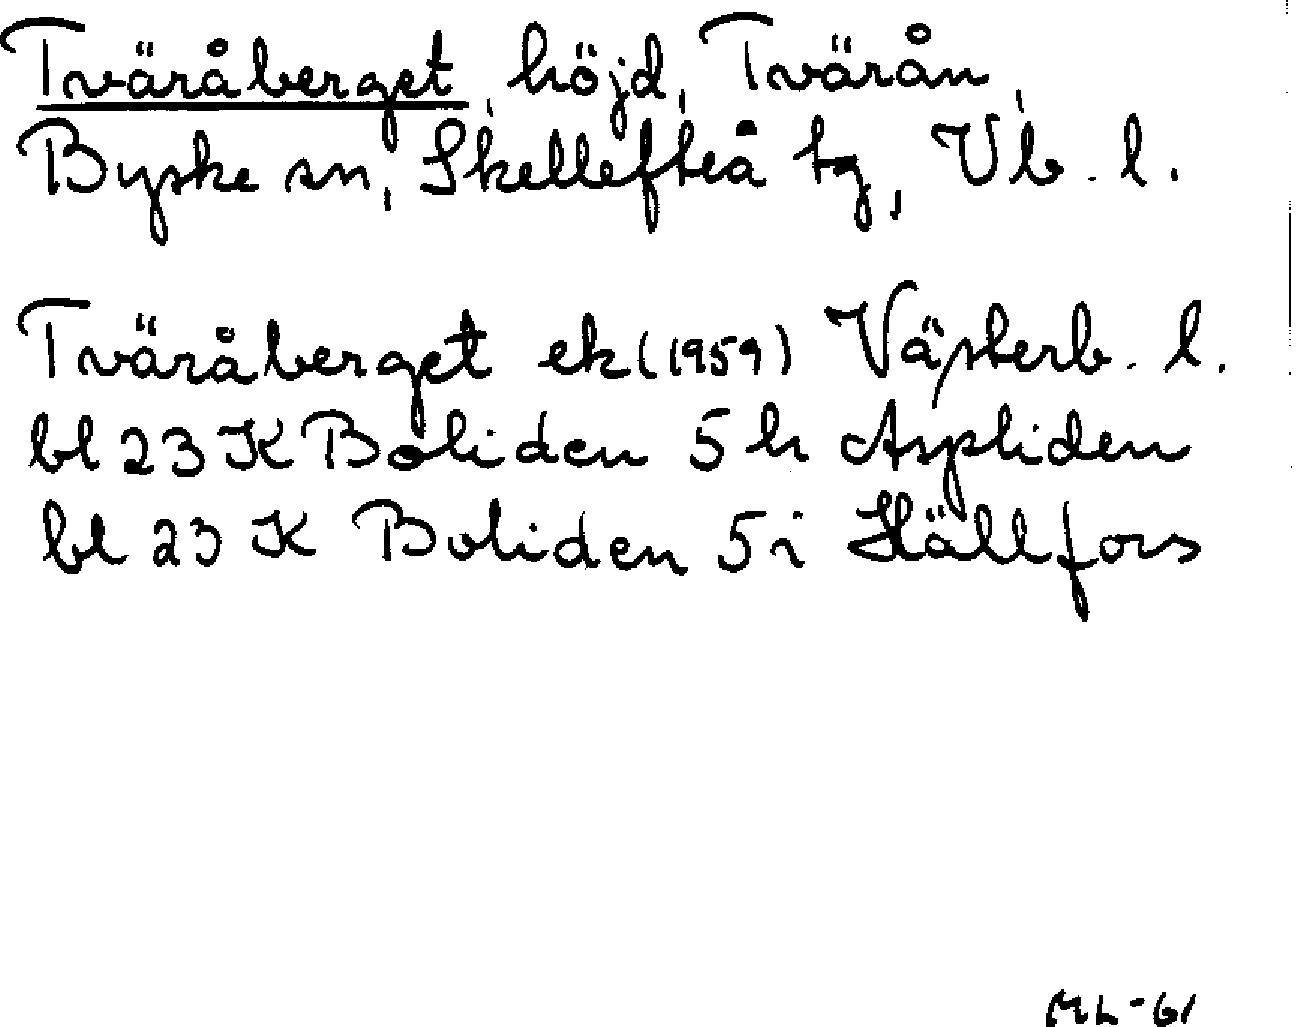 Tväråberget, höjd, Tvärån,
Byske sn, Skellefteå tg, Vb. l.
Tväråberget ek (1959) Västerb. l.
bl 23 K Boliden 5 h Aspliden
bl 23 K Boliden 5 i Hällfors
ML-61